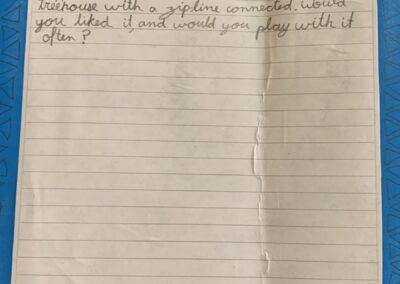 treehouse with a zipline connected. Would
you liked it, and would you play with it
often?